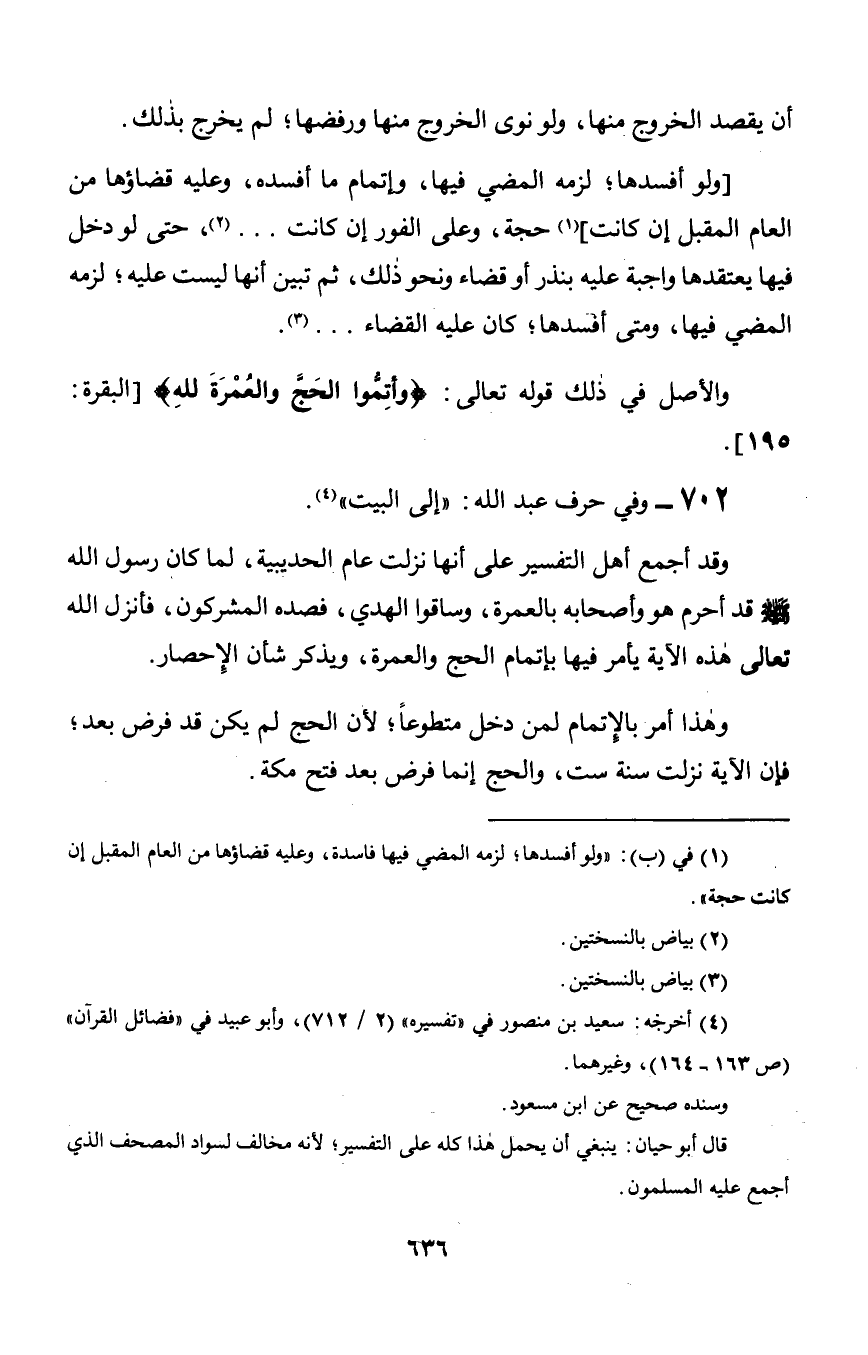 أن يقصد الخروج منها، ولو نوى الخروج منها ورفضها؛ لم يخرج بذٰلك.
[ولو أفسدها؛ لزمه المضي فيها، وإتمام ما أفسده، وعليه قضاؤها من
العام المقبل إن كانت](١) حجة، وعلى الفور إن كانت . . . (٢)، حتى لو دخل
فيها يعتقدها واجبة عليه بنذر أو قضاء ونحو ذٰلك، ثم تبين أنها ليست عليه؛ لزمه
المضي فيها، ومتى أفسدها؛ كان عليه القضاء . . . (٣).
والأصل في ذٰلك قوله تعالى: ﴿وأتِمُّوا الحَجَّ والعُمْرَةَ للهِ﴾ [البقرة:
١٩٥].
٧٠٢ ــ وفي حرف عبد الله: «إلى البيت»(٤).
وقد أجمع أهل التفسير على أنها نزلت عام الحديبية، لما كان رسول الله
ﷺ قد أحرم هو وأصحابه بالعمرة، وساقوا الهدي، فصده المشركون، فأنزل الله
تعالى هٰذه الآية يأمر فيها بإتمام الحج والعمرة، ويذكر شأن الإحصار.
وهٰذا أمر بالإتمام لمن دخل متطوعاً؛ لأن الحج لم يكن قد فرض بعد؛
فإن الآية نزلت سنة ست، والحج إنما فرض بعد فتح مكة.
(١) في (ب): «ولو أفسدها؛ لزمه المضي فيها فاسدة، وعليه قضاؤها من العام المقبل إن
كانت حجة».
(٢) بياض بالنسختين.
(٣) بياض بالنسختين.
(٤) أخرجه: سعيد بن منصور في «تفسيره» (٢ / ٧١٢)، وأبو عبيد في «فضائل القرآن»
(ص ١٦٣ - ١٦٤)، وغيرهما.
وسنده صحيح عن ابن مسعود.
قال أبو حيان: ينبغي أن يحمل هٰذا كله على التفسير؛ لأنه مخالف لسواد المصحف الذي
أجمع عليه المسلمون.
٦٣٦